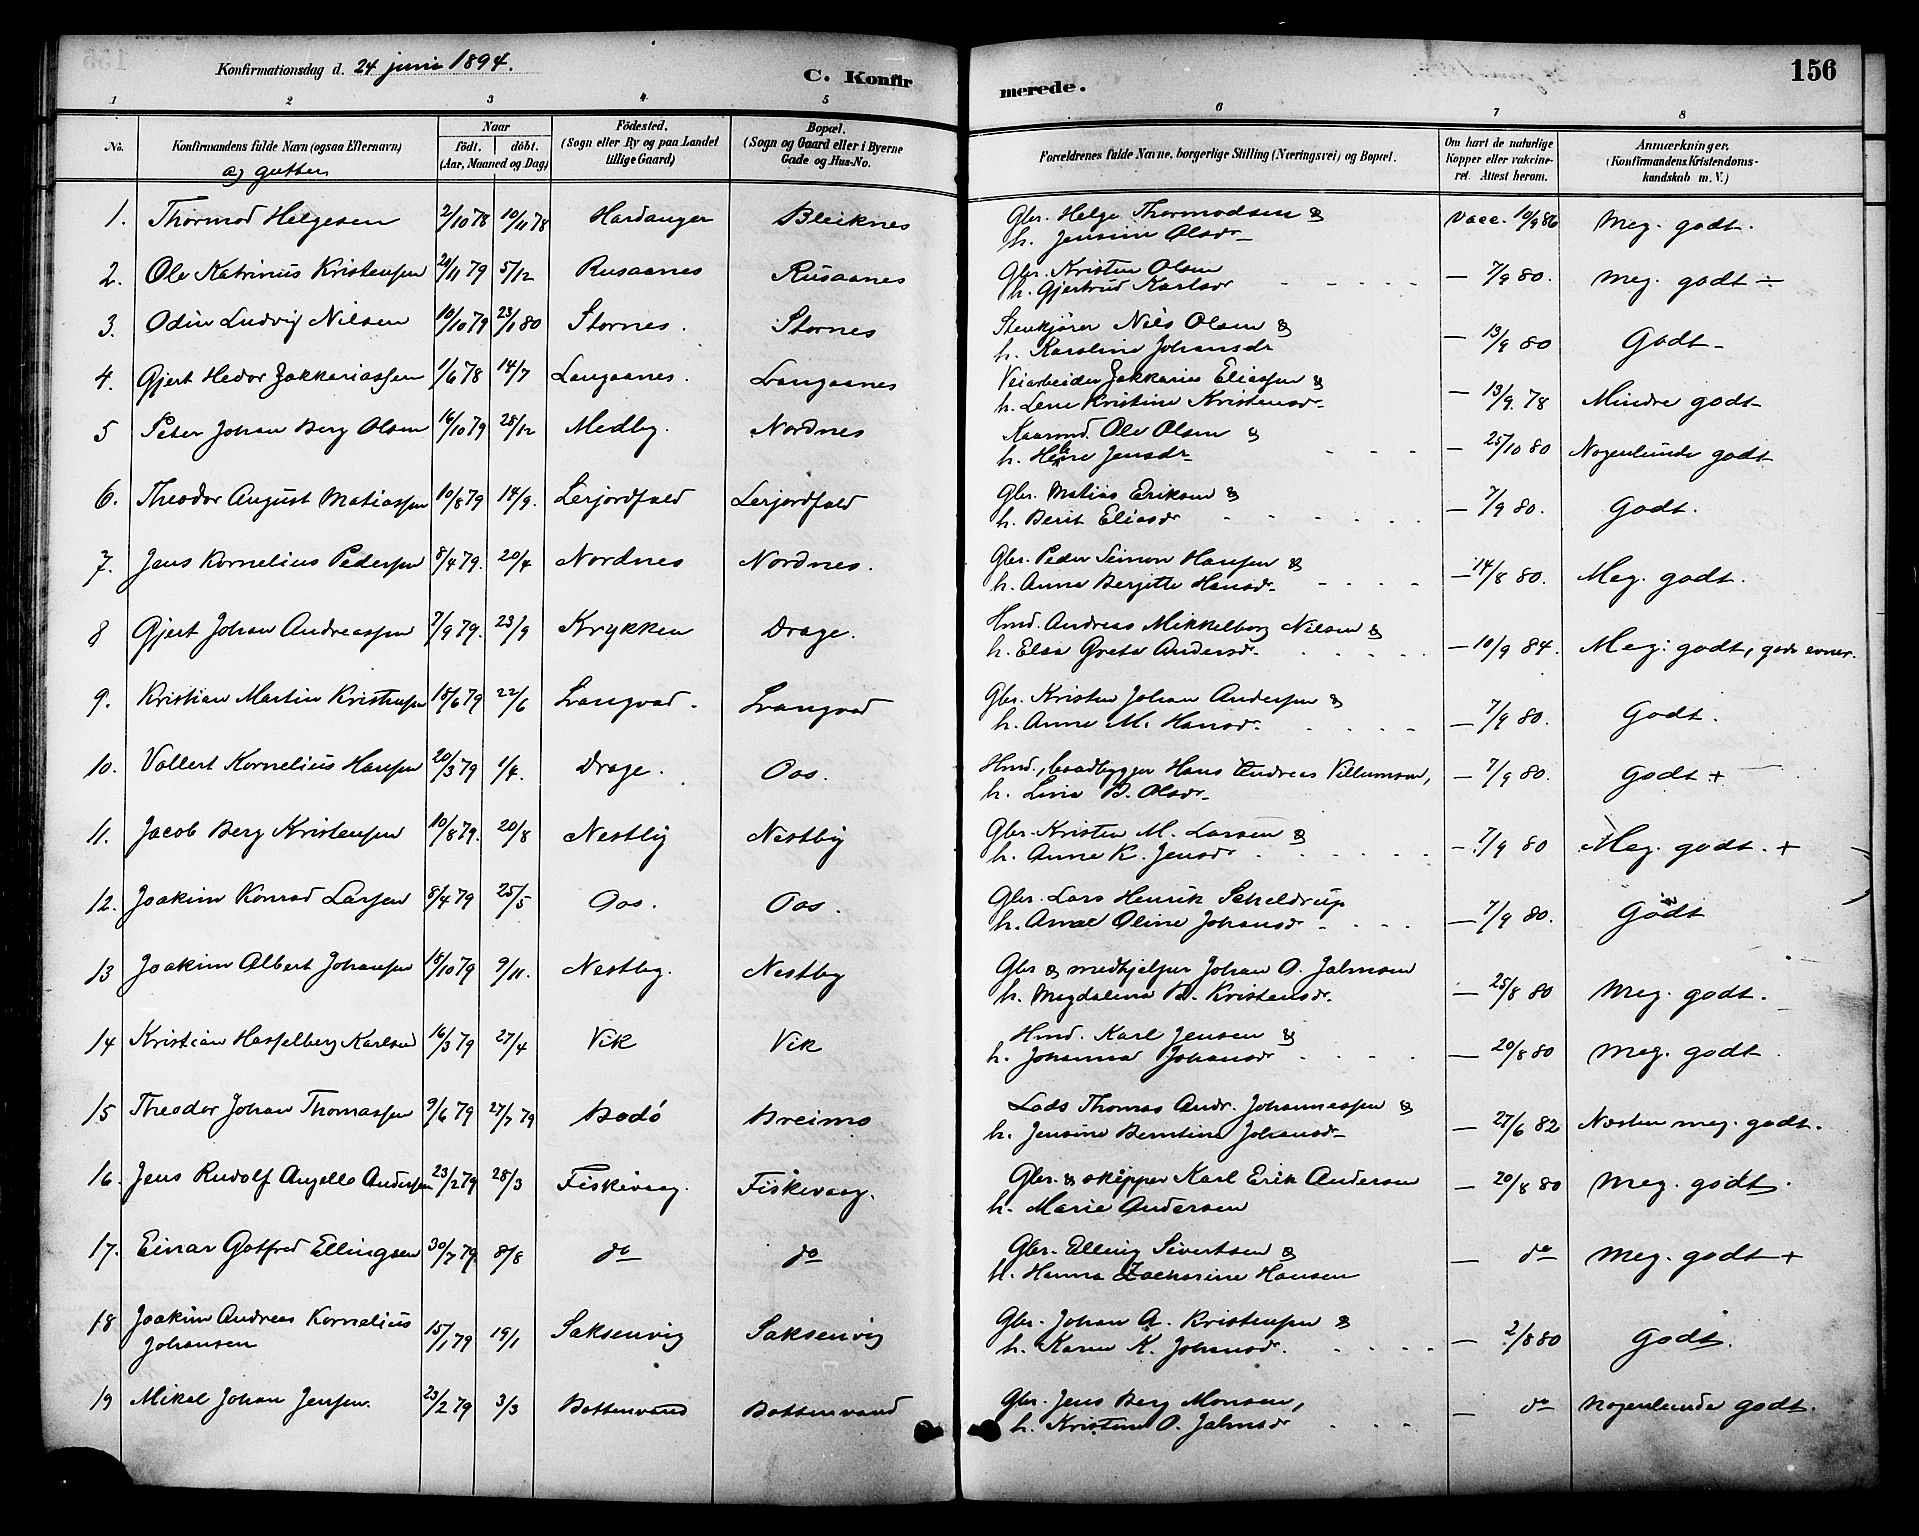 Konfirmationsdag d. 24 juni 1894.
C. Konfir
merede.
156
1 2 3 4 5 6 7 8
No.
Konfirmandens fulde Navn (ogsaa Efternavn)
a) gutter
Naar
födt. döbt.
(Aar, Maaned og Dag)
Födested.
(Sogn eller By og paa Landet
tillige Gaard)
Bopæl.
(Sogn og Gaard eller i Byerne
Gade og Hus-No.
Forældrenes fulde Navne, borgerlige Stilling (Næringsvei) og Bopæl.
Om havt de naturlige
Kopper eller vakcine-
ret. Attest herom.
Anmærkninger.
(Konfirmandens Kristendoms-
kundskab m. V.)
1. Thormod Helgesen 2/10 78 10/11 78 Hardanger Bleiknes Gbr. Helge Thormodsen & Vacc. 10/9 86 Meg. godt.
h. Jensine Olsdr
2. Ole Katrinus Kristensen 24/11 79 5/12 Rusaanes Rusaanes Gbr. Kristen Olsen — 7/9 80. Meg. godt ÷
h. Gjertrud Karlsdr
3. Odin Ludvig Nilsen 10/10 79 23/1 80 Stornes. Stornes Stenkjörer Nils Olsen & — 13/9 80 Godt
h. Karoline Johansdr
4. Gjert Hedor Zakkariassen 1/6 78 14/7 Langaanes. Langaanes Veiarbeider Zakkarias Eliassen & — 13/9. 78 Mindre godt
h. Lene Kristine Kristensdr
5 Peter Johan Berg Olsen 16/10 79 28/12 Medby. Nordnes Kaarmd. Ole Olsen & — 25/10 80 Nogenlunde godt
h. Helene Jensdr
6. Theodor August Matiassen 10/8 79 14/9. Lerjordfald Lerjordfald Gbr. Matias Eriksen & — 7/9 80. Godt.
h. Berit Eliasdr
7. Jens Kornelius Pedersen 8/4 79. 20/4 Nordnes Nordnes. Gbr. Peder Simon Hansen & — 14/8 80. Meg. godt.
h. Anna Bergitte Hansdr
8 Gjert Johan Andreassen 7/9 79. 23/9 Krykken Drage. Hmd. Andreas Mikkelborg Nilsen & — 10/9 84. Meg. godt, gode evner.
h. Elsa Greta Andersdr.
9. Kristian Martin Kristensen 15/6 79 22/6 Langvad. Langvad Gbr. Kristen Johan Andersen & — 7/9 80. Godt.
h. Anne M. Hansdr.
10. Vollert Kornelius Hansen 20/3 79 1/4. Drage. Oos. Hmd., baadbygger Hans Andreas Villumsen, — 7/9 80. Godt +
h. Lina B. Olsdr
11. Jacob Berg Kristensen 10/8 79. 20/8 Nestby Nestby Gbr. Kristen M. Larsen & — 7/9 80 Meg. godt. +
h. Anne K. Jensdr
12. Joakim Konrad Larsen 8/4 79 25/5 Oos. Oos. Gbr. Lars Henrik Scheldrup — 7/9 80. Godt
h. Amal Oline Johansdr
13 Joakim Albert Johansen 18/10 79 9/11. Nestby. Nestby Gbr & medhjelper Johan O. Jalmsen — 25/8 80 Meg. godt.
h. Magdalena B. Kristensdr.
14 Kristian Hasselberg Karlsen 16/3 79 27/4 Vik Vik Hmd. Karl Jensen & — 20/8 80 Meg. godt.
h. Johanna Johansdr
15 Theodor Johan Thomassen 9/6 79 27/7 79 Bodö Breimo Lods Thomas Andr. Johannessen & — 27/6 82 Næsten meg. godt.
h. Jensine Berntine Johansdr
16. Jens Rudolf Angello Andersen 23/2 79 28/3 Fiskevaag. Fiskevaag. Gbr. & skipper Karl Erik Andersen — 20/8 80 Meg. godt.
h. Marie Andersen
17. Einar Gotfred Ellingsen 30/7 79 8/8 do do Gbr. Elling Sivertsen & — do Meg. godt +
h. Hanna Zacharine Hansen
18 Joakim Andreas Kornelius 15/1 79 19/1 Saksenvig Saksenvig Gbr. Johan A. Kristensen & — 2/8 80 Godt.
Johansen h. Karen K. Johansdr.
19 Mikal Johan Jensen. 23/2 79 3/3 Bottenvand Bottenvand Gbr. Jens Berg Monsen, — do Nogenlunde godt.
h. Kristine O. Jalmsdr